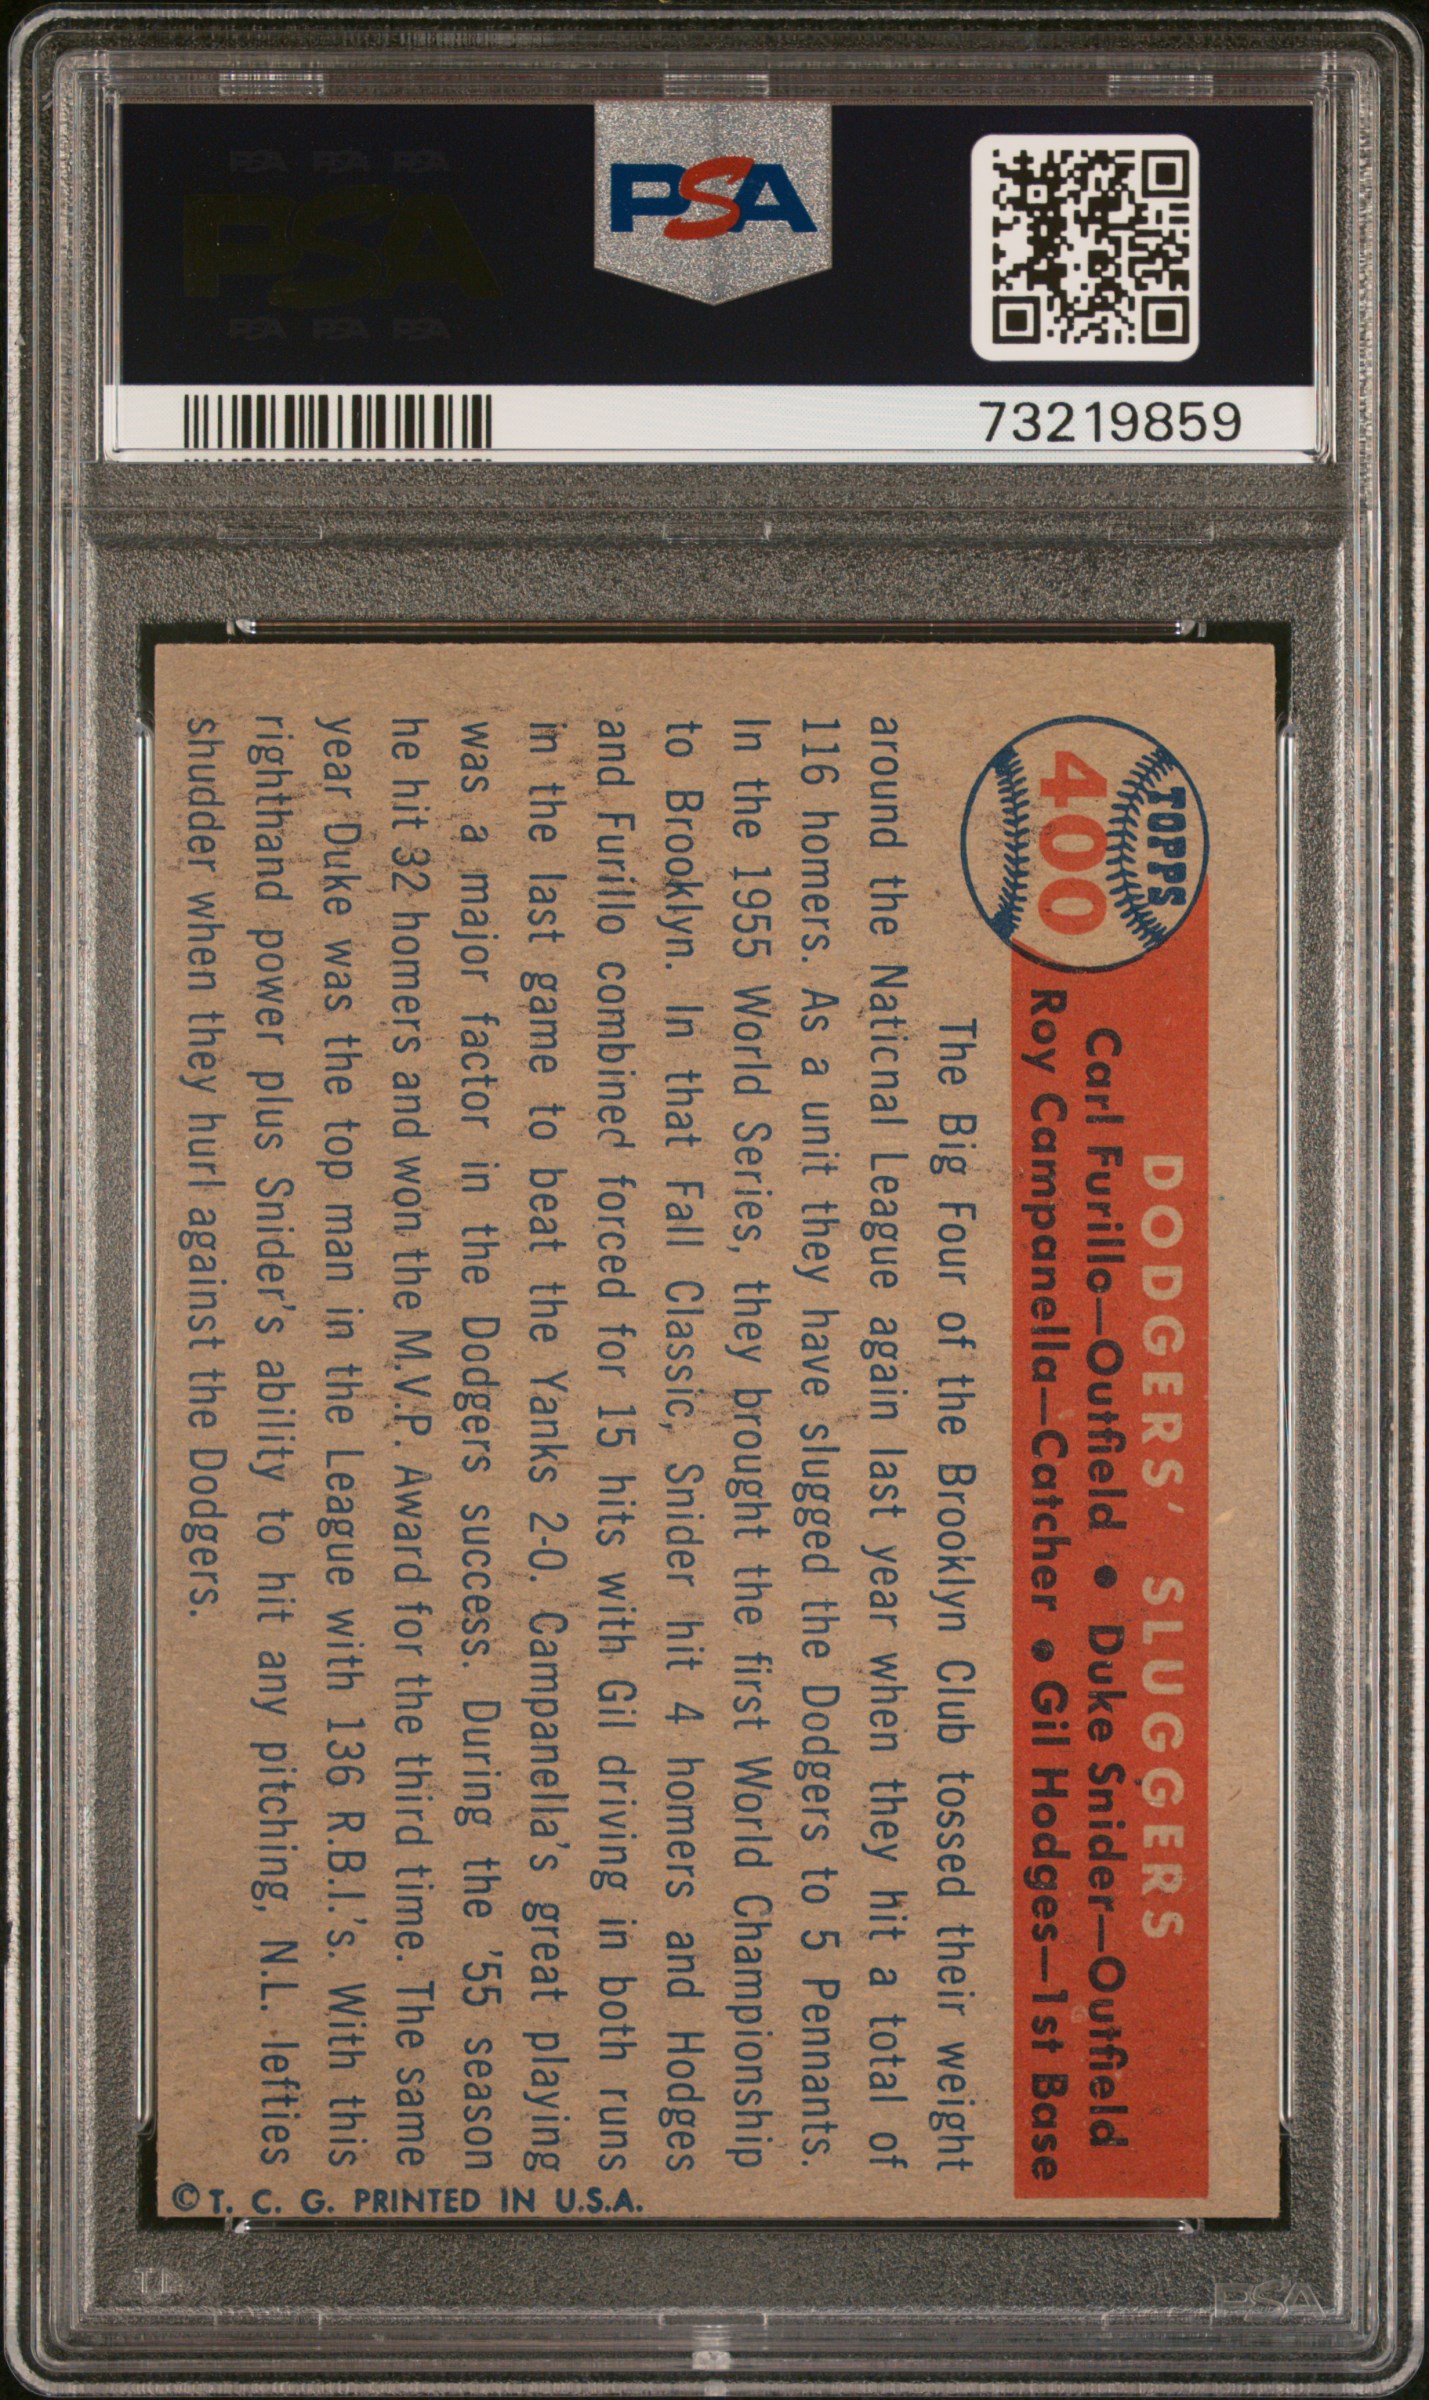 PSA PSA PSA
PSA
PSA PSA PSA
PSA
73219859
TOPPS
400
DODGERS' SLUGGERS
Carl Furillo—Outfield • Duke Snider—Outfield
Roy Campanella—Catcher • Gil Hodges—1st Base
The Big Four of the Brooklyn Club tossed their weight
around the National League again last year when they hit a total of
116 homers. As a unit they have slugged the Dodgers to 5 Pennants.
In the 1955 World Series, they brought the first World Championship
to Brooklyn. In that Fall Classic, Snider hit 4 homers and Hodges
and Furillo combined forced for 15 hits with Gil driving in both runs
in the last game to beat the Yanks 2-0. Campanella's great playing
was a major factor in the Dodgers success. During the '55 season
he hit 32 homers and won the M.V.P. Award for the third time. The same
year Duke was the top man in the League with 136 R.B.I.'s. With this
righthand power plus Snider's ability to hit any pitching, N.L. lefties
shudder when they hurl against the Dodgers.
©T. C. G. PRINTED IN U.S.A.
PSA